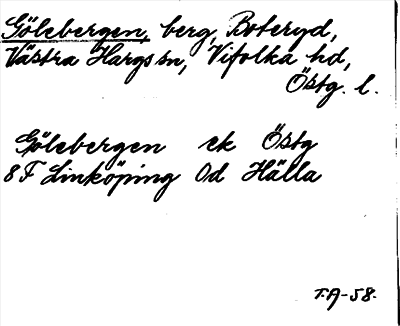 Gölebergen, berg, Boteryd,
Västra Hargs sn, Vifolka hd,
Östg. l.
Gölebergen ek Östg
8 F Linköping 0d Hälla
T.A-58.